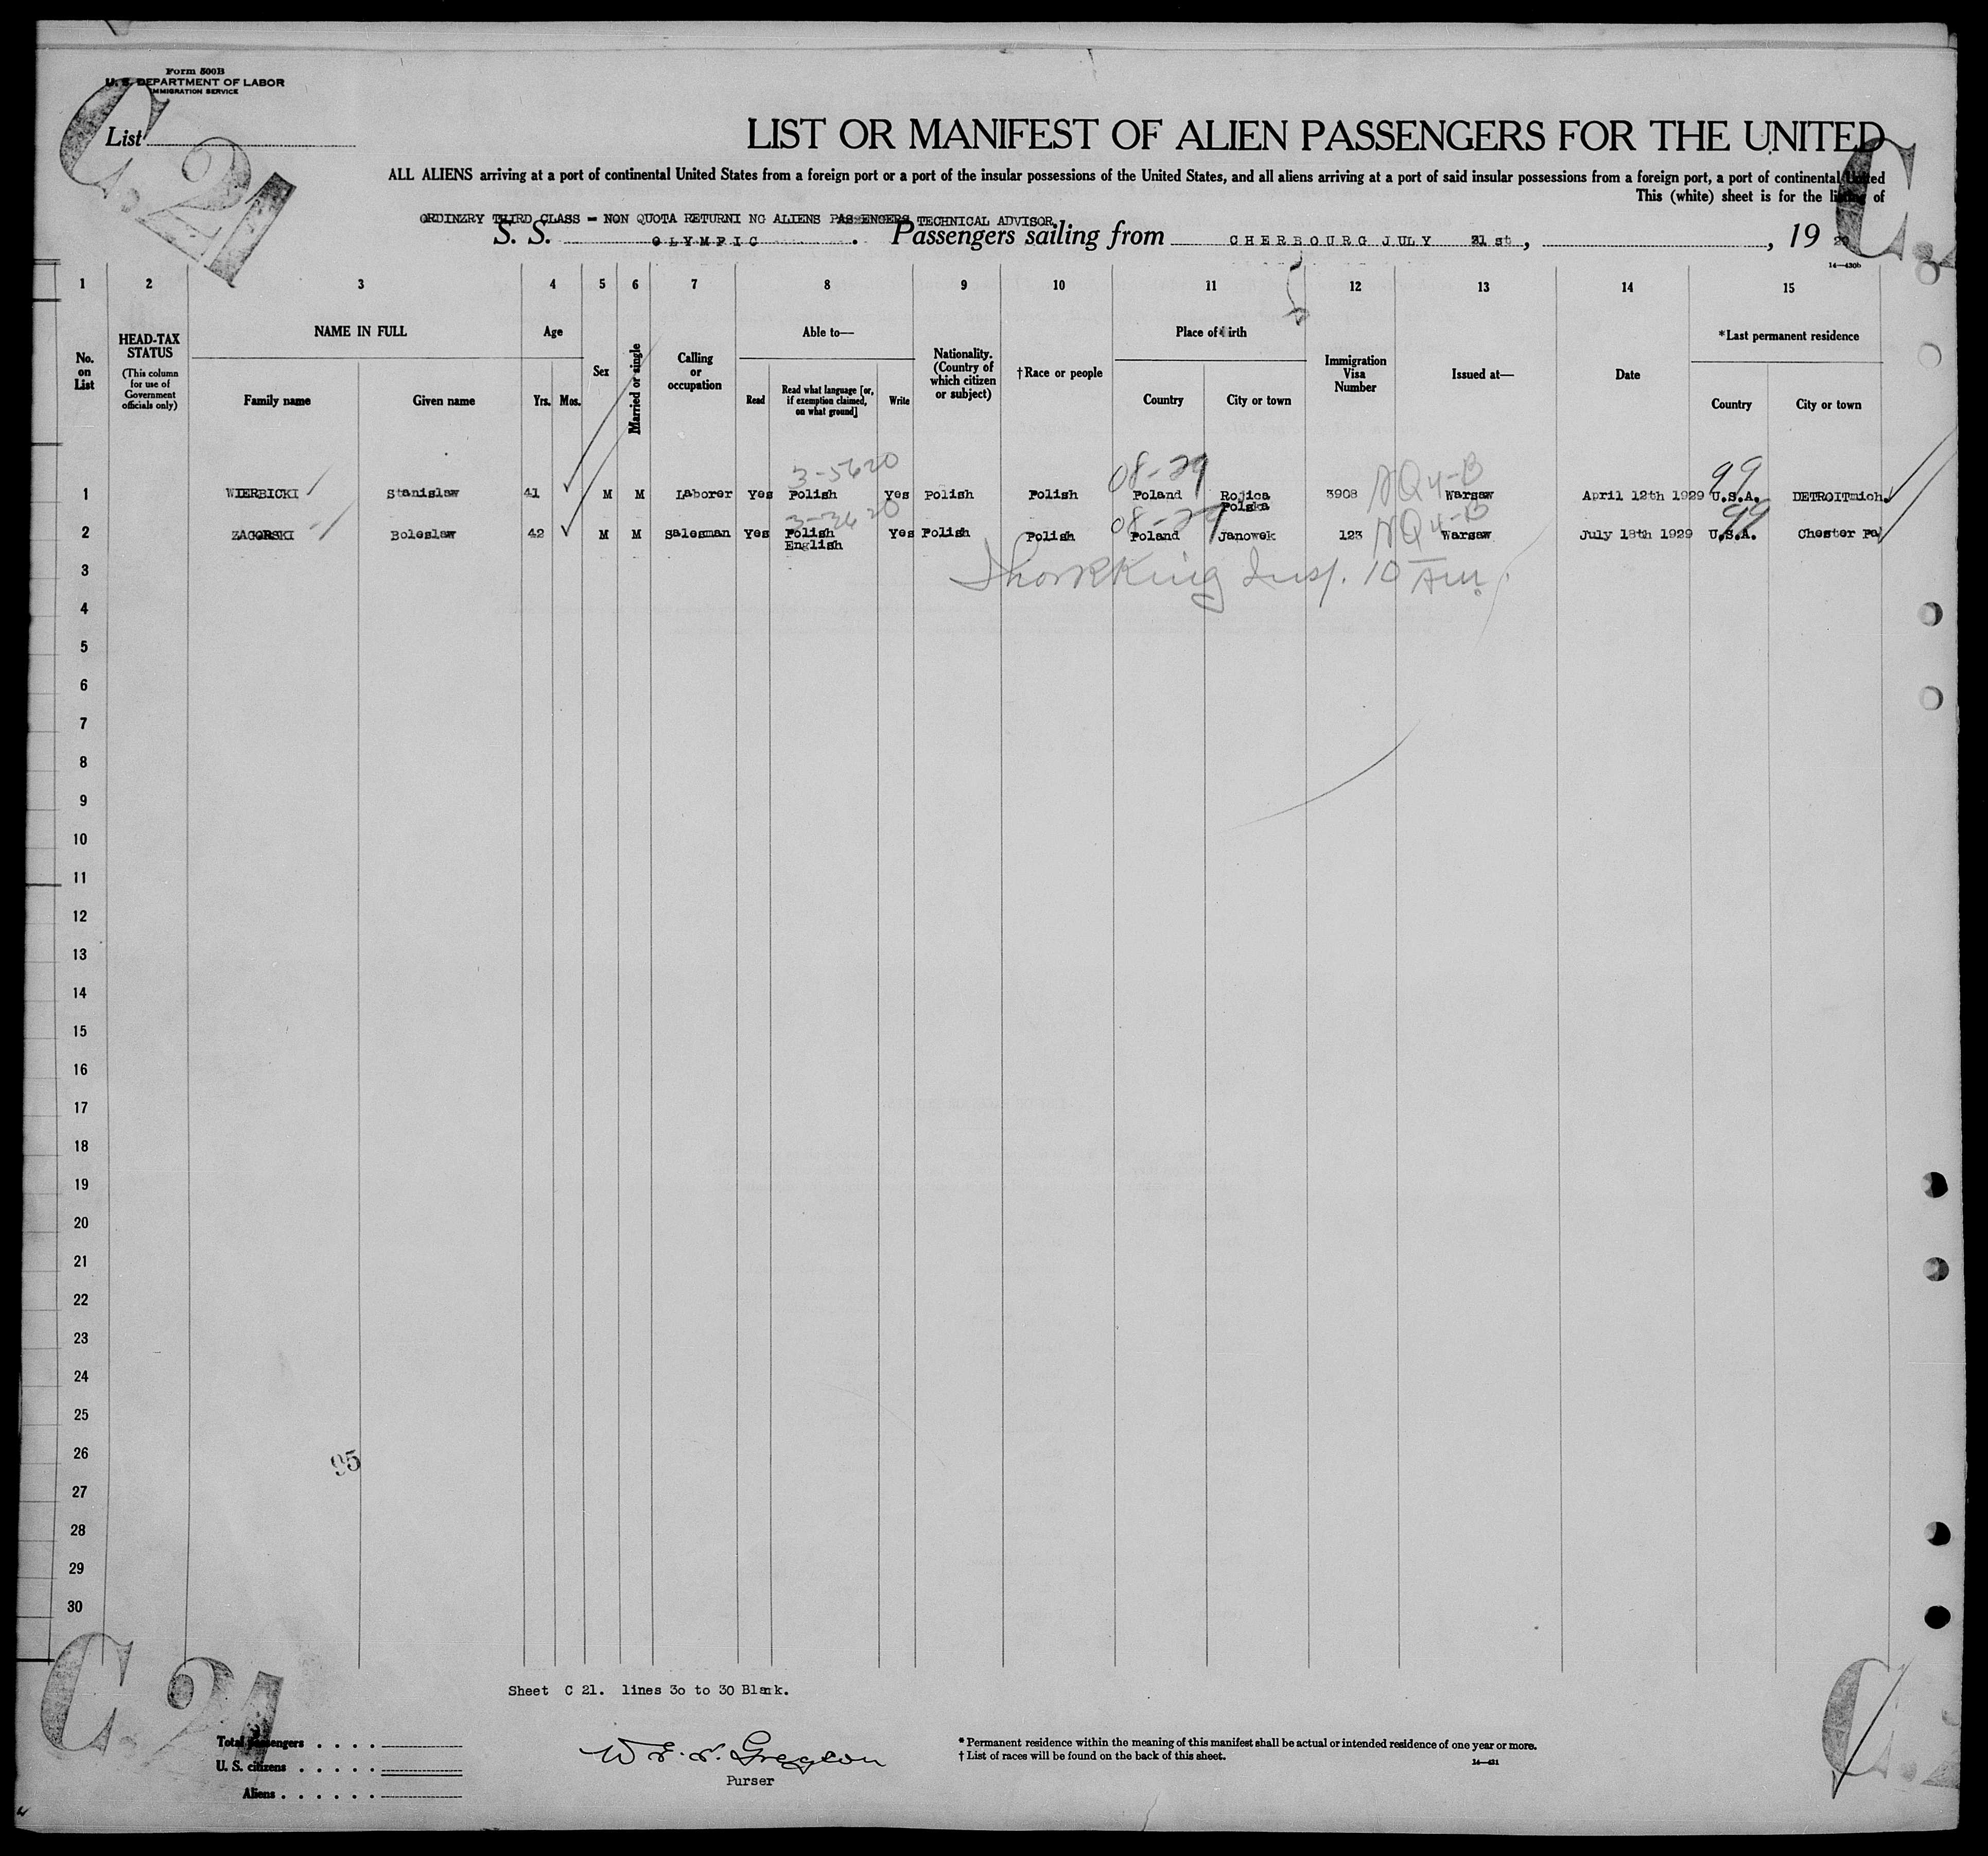 Form 500B
U. S. DEPARTMENT OF LABOR
IMMIGRATION SERVICE
C. 21
List
LIST OR MANIFEST OF ALIEN PASSENGERS FOR THE UNITED
C.
ALL ALIENS arriving at a port of continental United States from a foreign port or a port of the insular possessions of the United States, and all aliens arriving at a port of said insular possessions from a foreign port, a port of continental United
This (white) sheet is for the listing of
ORDINZRY THIRD CLASS - NON QUOTA RETURNI NG ALIENS PASSENGERS TECHNICAL ADVISOR
S. S. OLYMPIC. Passengers sailing from CHERBOURG JULY 21 st, , 19 29
14—430b
1 2 3 4 5 6 7 8 9 10 11 12 13 14 15
No. on List
HEAD-TAX STATUS
(This column for use of Government officials only)
NAME IN FULL
Family name Given name
Age
Yrs. Mos.
Sex
Married or single
Calling or occupation
Able to—
Read
Read what language [or, if exemption claimed, on what ground]
Write
Nationality. (Country of which citizen or subject)
†Race or people
Place of birth
Country City or town
Immigration Visa Number
Issued at—
Date
*Last permanent residence
Country City or town
3-5620 08-29 NQ 4-B 99
1 WIERBICKI Stanislaw 41 M M Laborer Yes Polish Yes Polish Polish Poland Rojica Polska 3908 Warsaw April 12th 1929 U.S.A. DETROITmich.
08-29 NQ 4-B 99
2 ZAGORSKI Boleslaw 42 M M Salesman Yes Polish English Yes Polish Polish Poland Janowek 123 Warsaw July 18th 1929 U.S.A. Chester Pa
3 Insp. 10 AM.
4
5
6
7
8
9
10
11
12
13
14
15
16
17
18
19
20
21
22
23
24
25
26
95
27
28
29
30
Sheet C 21. lines 3o to 30 Blank.
C. 21
Total passengers
U. S. citizens
Aliens
Purser
* Permanent residence within the meaning of this manifest shall be actual or intended residence of one year or more.
† List of races will be found on the back of this sheet.
14—431
C. 2